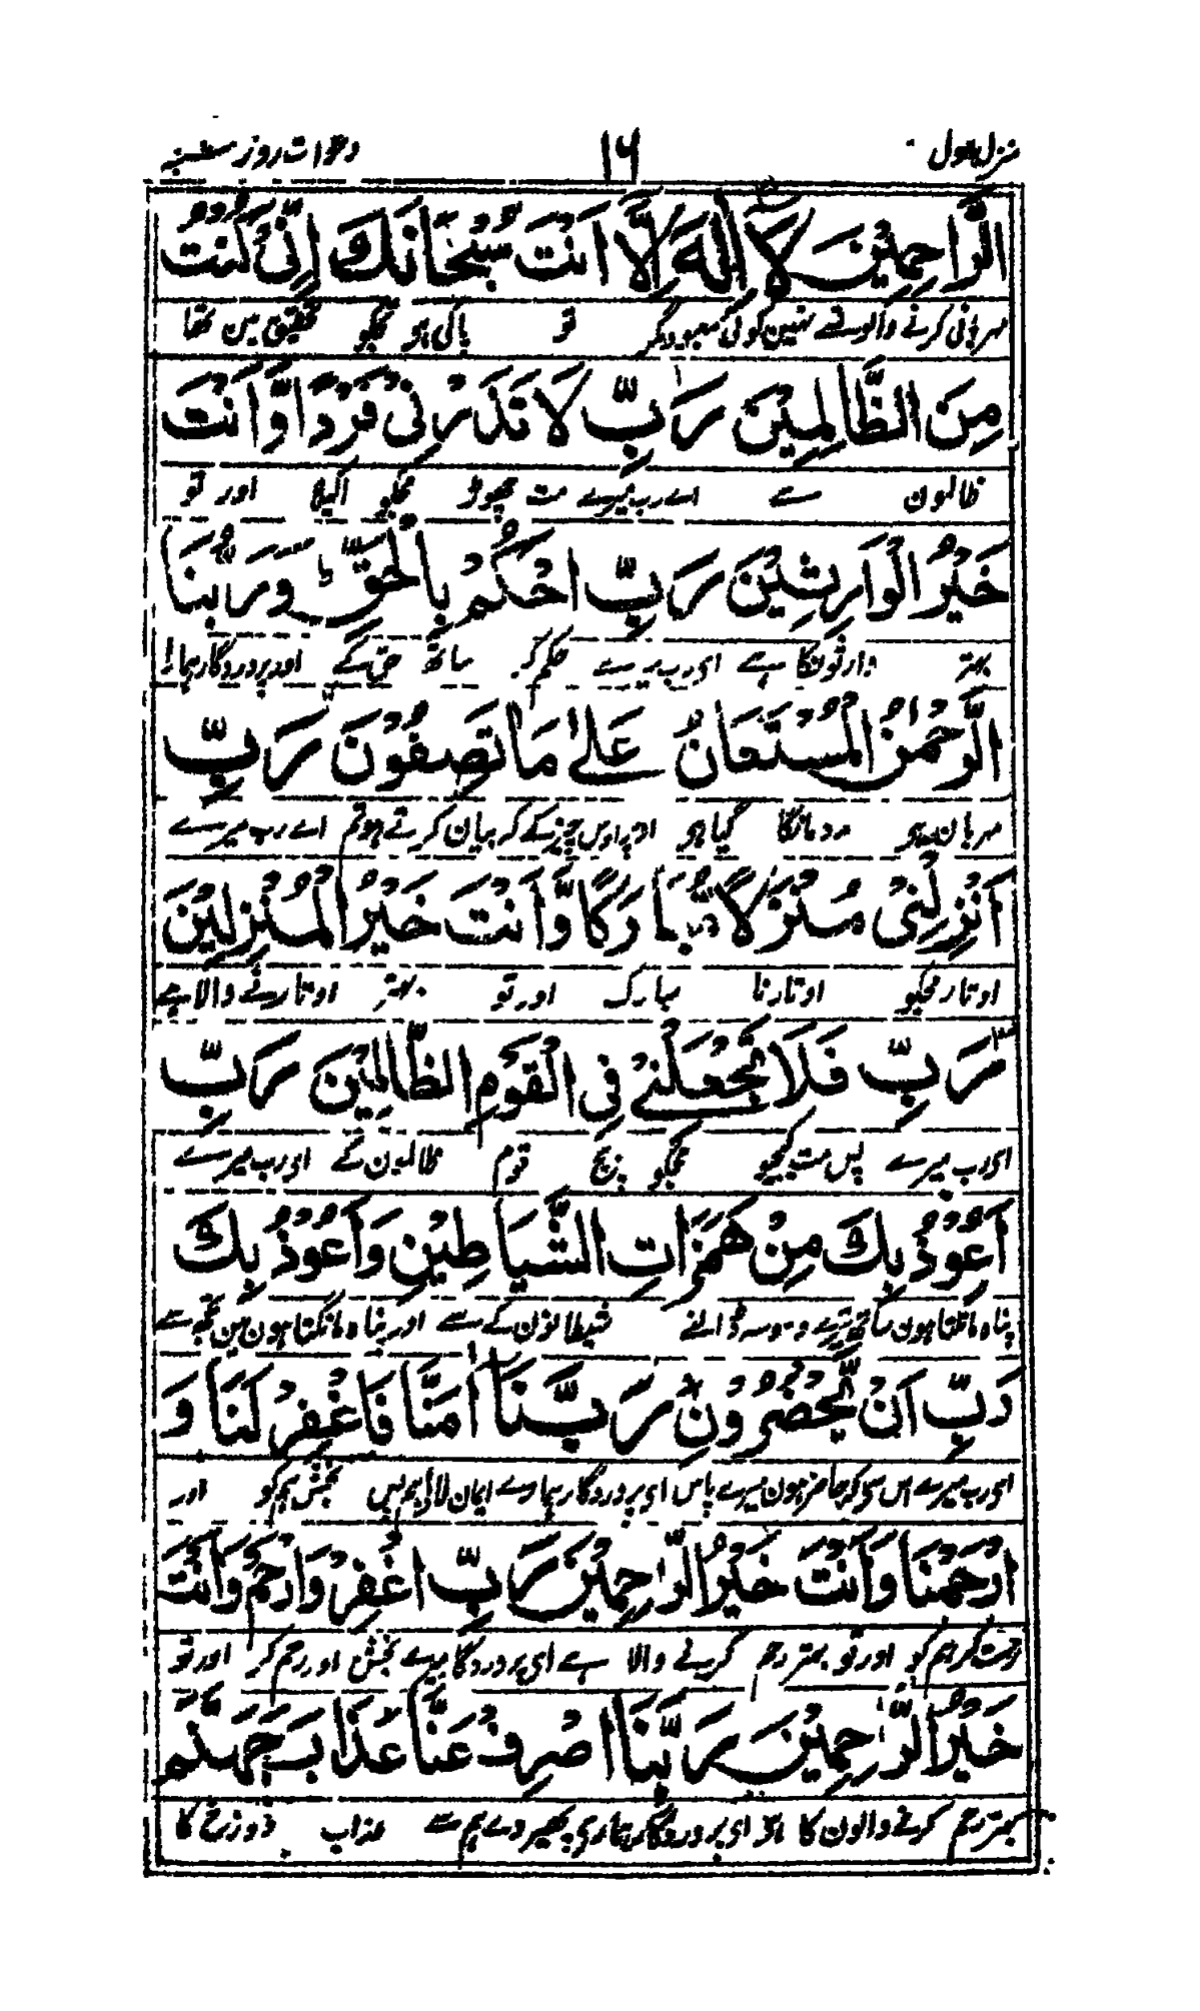 منزل اول ١٦ دعوات روز شنبہ
الرَّاحِمِيْنَ لَا إِلٰهَ إِلَّا أَنْتَ سُبْحَانَكَ إِنِّي كُنْتُ
مہربانی کرنے والونسے نہین کوئی معبود مگر تو پاکی ہو تجکو تحقیق مین تھا
مِنَ الظَّالِمِيْنَ رَبِّ لَا تَذَرْنِي فَرْدًا وَّأَنْتَ
ظالمون سے اے رب میرے مت چھوڑ مجکو اکیلا اور تو
خَيْرُ الْوَارِثِيْنَ رَبِّ احْكُمْ بِالْحَقِّ ط وَرَبُّنَا
بہتر وارثونکا ہے ای رب میرے حکم کر ساتھ حق کے اور پروردگار ہمارا
الرَّحْمٰنُ الْمُسْتَعَانُ عَلىٰ مَا تَصِفُوْنَ رَبِّ
مہربان ہو مدد مانگا گیا ہو اوپر اوس چیز کے کہ بیان کرتے ہو تم اے رب میرے
أَنْزِلْنِيْ مُنْزَلًا مُّبَارَكًا وَّأَنْتَ خَيْرُ الْمُنْزِلِيْنَ
اوتار مجکو اوتارنا مبارک اور تو بہتر اوتارنے والا ہے
رَبِّ فَلَا تَجْعَلْنِيْ فِي الْقَوْمِ الظَّالِمِيْنَ رَبِّ
ای رب میرے پس مت کیجیو مجکو بیچ قوم ظالمون کے ای رب میرے
أَعُوْذُ بِكَ مِنْ هَمَزَاتِ الشَّيَاطِيْنِ وَأَعُوْذُ بِكَ
پناہ مانگتا ہون ساتھ تیرے وسوسہ ڈالنے شیطانون کے سے اور پناہ مانگتا ہون مین تجھ سے
رَبِّ أَنْ يَّحْضُرُوْنِ رَبَّنَا اٰمَنَّا فَاغْفِرْ لَنَا وَ
ای رب میرے اس سی کہ حاضر ہون میرے پاس ای پروردگار ہمارے ایمان لائے ہم پس بخش ہمکو اور
ارْحَمْنَا وَأَنْتَ خَيْرُ الرَّاحِمِيْنَ رَبِّ اغْفِرْ وَارْحَمْ وَأَنْتَ
رحمت کر ہم کو اور تو بہتر رحم کرنے والا ہے ای پروردگار میرے بخش اور رحم کر اور تو
خَيْرُ الرَّاحِمِيْنَ رَبَّنَا اصْرِفْ عَنَّا عَذَابَ جَهَنَّمَ
بہتر رحم کرنے والون کا ہے ای پروردگار ہمارے پھیر دے ہم سے عذاب دوزخ کا